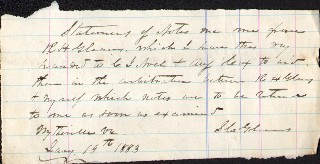 Statement of Notes me me from
R H Glenns, which I have this day
handed to C J Noel + to use
them in the arbitration between R H Glenns
+ myself which notes are to be returned
to me as soon as examined
Wytheville Va
Jany 19th 1883